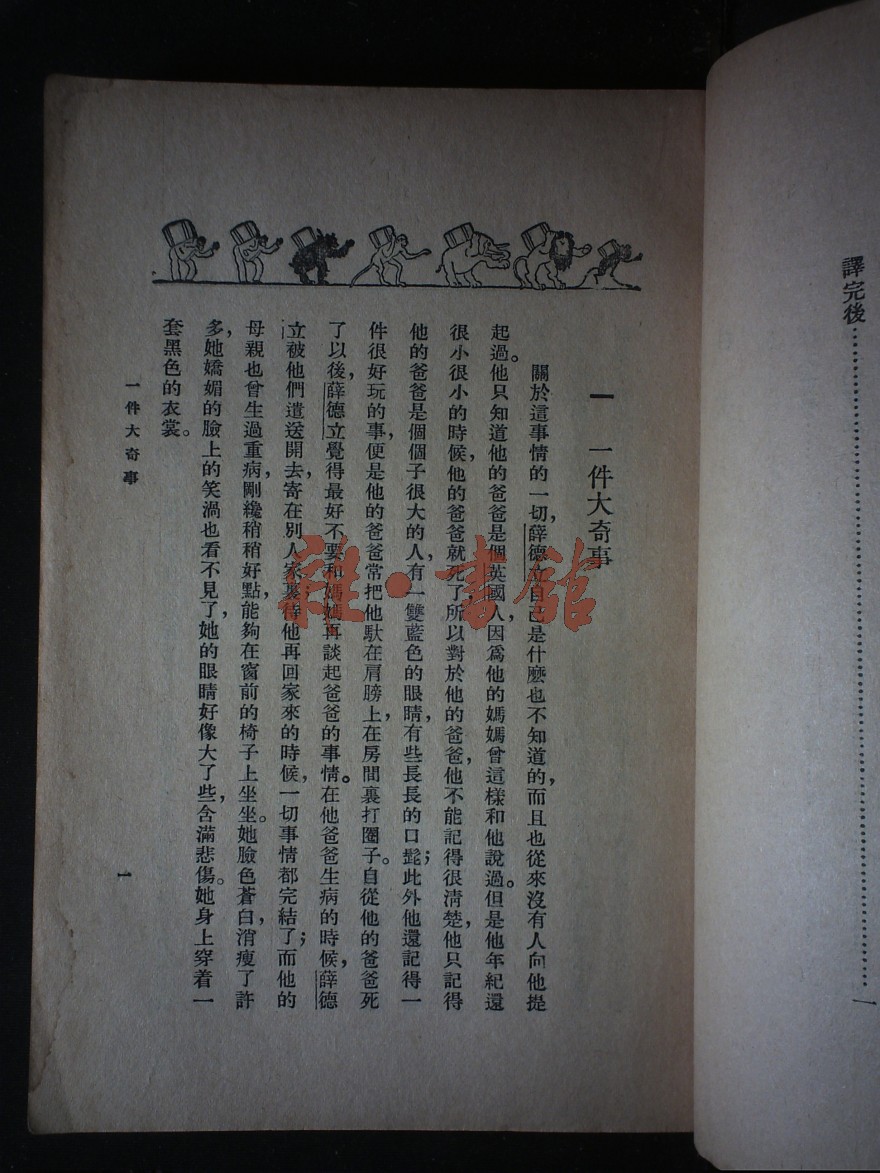 譯完後……………………………一
一 一件大奇事
關於這事情的一切，薛德立自己是什麼也不知道的，而且也從來沒有人向他提
起過。他只知道他的爸爸是個英國人，因爲他的媽媽曾這樣和他說過。但是他年紀還
很小很小的時候，他的爸爸就死了所以對於他的爸爸，他不能記得很清楚，他只記得
他的爸爸是個個子很大的人，有一雙藍色的眼睛，有些長長的口髭；此外他還記得一
件很好玩的事，便是他的爸爸常把他馱在肩膀上，在房間裏打圈子。自從他的爸爸死
了以後，薛德立覺得最好不要和媽媽再談起爸爸的事情。在他爸爸生病的時候，薛德
立被他們遣送開去，寄在別人家裏，待他再回家來的時候，一切事情都完結了；而他的
母親也曾生過重病，剛纔稍稍好點，能夠在窗前的椅子上坐坐。她臉色蒼白，消瘦了許
多，她嬌媚的臉上的笑渦也看不見了，她的眼睛好像大了些，含滿悲傷。她身上穿着一
套黑色的衣裳。
一件大奇事
1
雜·書館